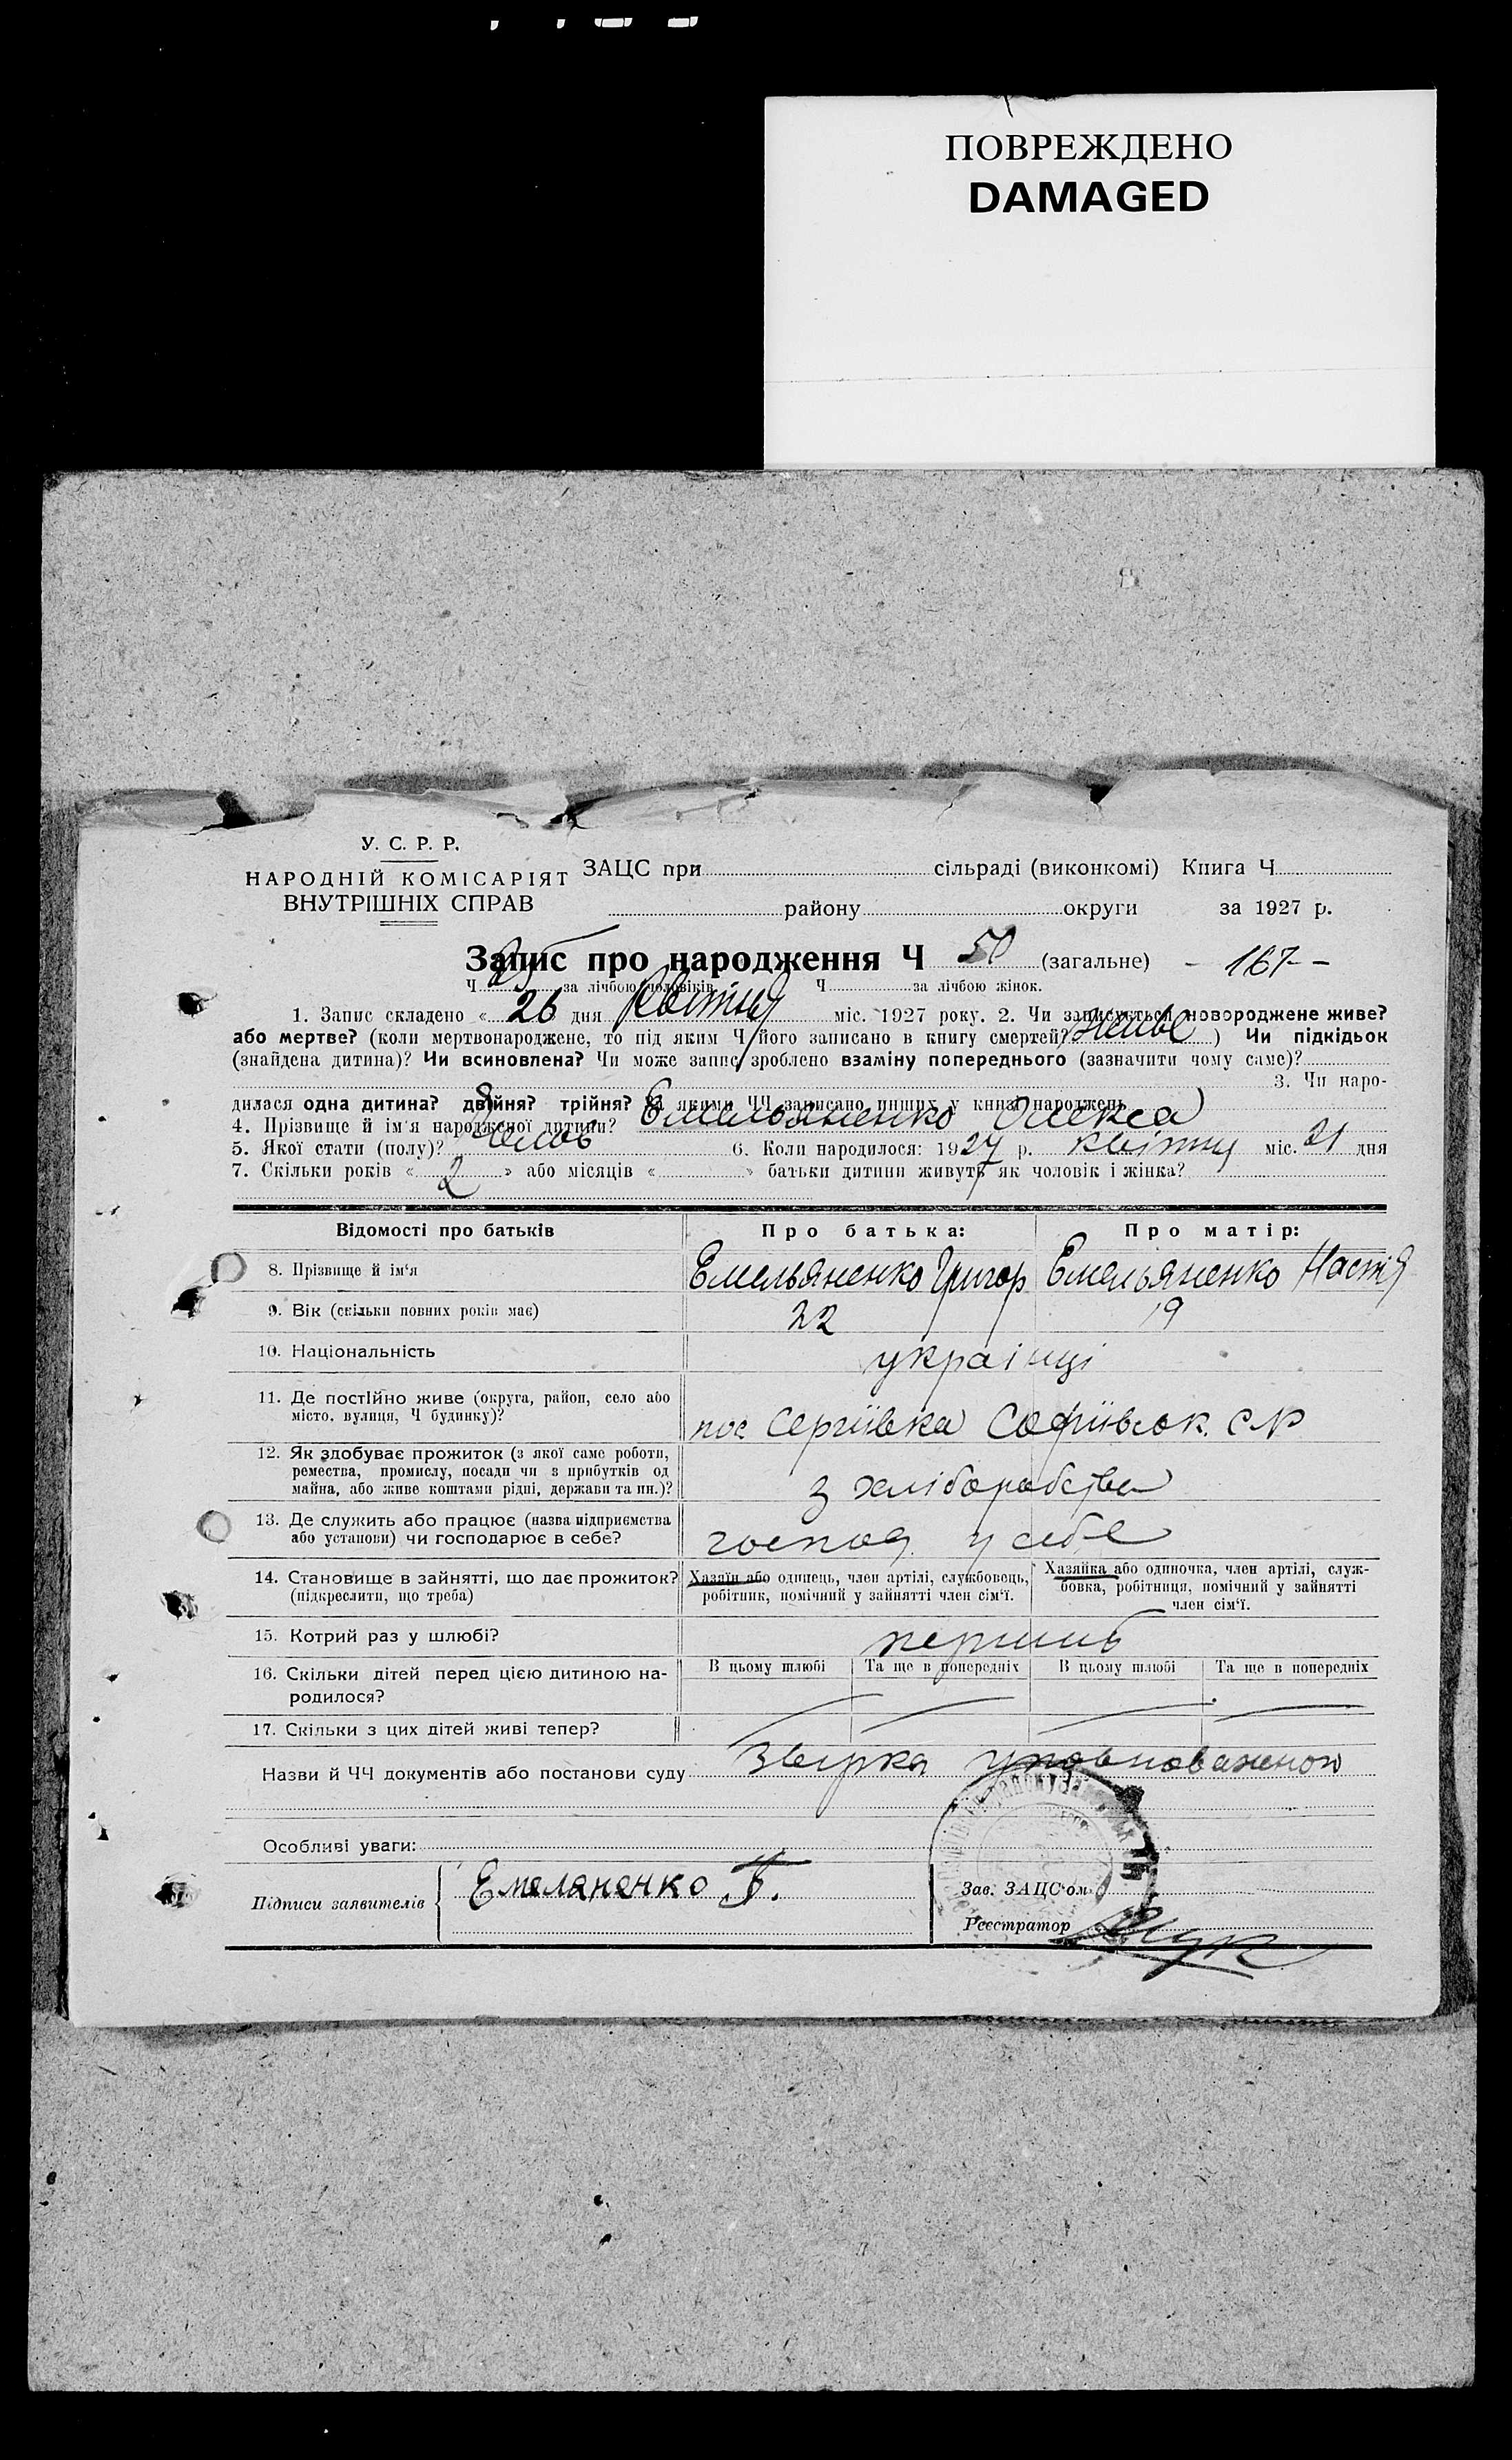 ПОВРЕЖДЕНО
DAMAGED
У. С. Р. Р.
НАРОДНІЙ КОМІСАРІЯТ
ВНУТРІШНІХ СПРАВ
ЗАЦС при сільраді (виконкомі) Книга Ч
району округи за 1927 р.
Запис про народження Ч 50 (загальне) - 167 -
Ч 25 за лічбою чоловіків Ч за лічбою жінок.
1. Запис складено « 26 дня Квітня міс. 1927 року. 2. Чи записується новороджене живе?
або мертве? (коли мертвонароджене, то під яким Ч його записано в книгу смертей? живе ) Чи підкідьок
(знайдена дитина)? Чи всиновлена? Чи може запис зроблено взаміну попереднього (зазначити чому саме)?
3. Чи наро-
дилася одна дитина? двійня? трійня? За якими ЧЧ записано инших у книзі народжень
4. Прізвище й ім'я народженої дитини? Емельяненко Олекса
5. Якої стати (полу)? Чолов 6. Коли народилося: 1927 р. квітня міс. 21 дня
7. Скільки років « 2 » або місяців « » батьки дитини живуть як чоловік і жінка?
Відомості про батьків Про батька: Про матір:
8. Прізвище й ім'я Емельяненко Григор Емельяненко Настя
9. Вік (скільки повних років має) 22 19
10. Національність украінці
11. Де постійно живе (округа, район, село або
місто, вулиця, Ч будинку)? пос Сергіівка Софіівськ. С/Р
12. Як здобуває прожиток (з якої саме роботи,
ремества, промислу, посади чи з прибутків од
майна, або живе коштами рідні, держави та ин.)? з хліборобства
13. Де служить або працює (назва підприємства
або установи) чи господарює в себе? господ. у себе
14. Становище в зайнятті, що дає прожиток?
(підкреслити, що треба)
Хазяїн або одинець, член артілі, службовець,
робітник, помічний у зайнятті член сім'ї.
Хазяйка або одиночка, член артілі, служ-
бовка, робітниця, помічний у зайнятті
член сім'ї.
15. Котрий раз у шлюбі? перший
16. Скільки дітей перед цією дитиною на-
родилося?
В цьому шлюбі Та ще в попередніх В цьому шлюбі Та ще в попередніх
17. Скільки з цих дітей живі тепер?
Назви й ЧЧ документів або постанови суду звірка уповноваженого
Особливі уваги:
Підписи заявителів Емеляненко Г.
Зав. ЗАЦС'ом
Реєстратор